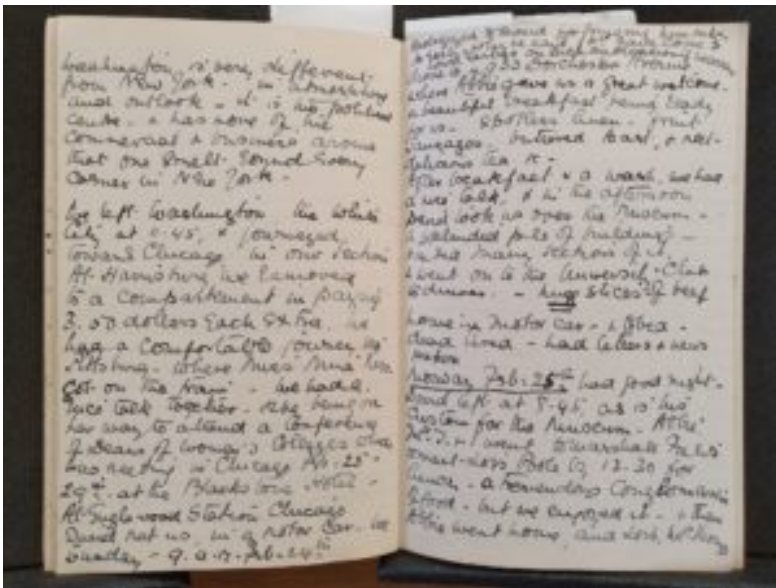 Washington is very different
from New York - in atmosphere
and outlook - it is the political
centre - & has none of the
commercial & business aroma
that one smells round every
corner in New York -
We left Washington, the White
City at 6-45, & journeyed
toward Chicago in our section
At Harrisburg we removed
to a compartment in paying
3.50 dollars each extra. we
had a comfortable journey
Pittsburg - where Miss
got on the train - we had a
nice talk together - she being on
her way to attend a conference
of Deans of Women's Colleges which
was meeting in Chicago Feb - 25 -
29th at the Blackstone Hotel -
At Englewood Station Chicago
David met us, in a motor car - on
Sunday - 9 a.m. Feb - 24th
933 Dorchester Avenue
where Attie gave us a great welcome.
a beautiful breakfast being ready
for us - spotless linen - fruit
sausages - buttered toast, &
delicious tea &c -
After breakfast & a wash, we had
a nice talk, & in the afternoon
David took us over the Museum -
a splendid pile of buildings -
the many sections of it.
& went on to the University Club
to dinner. - huge slices of beef
home in motor car - & to bed -
dead tired - had letters & news
Monday Feb - 25th had good night -
David left at 8-45 as is his
custom for the Museum. Attie
went to Marshall Field's
by 12.30 for
lunch - a tremendous conglomeration
of food - but we enjoyed it - & then
Attie went home, and